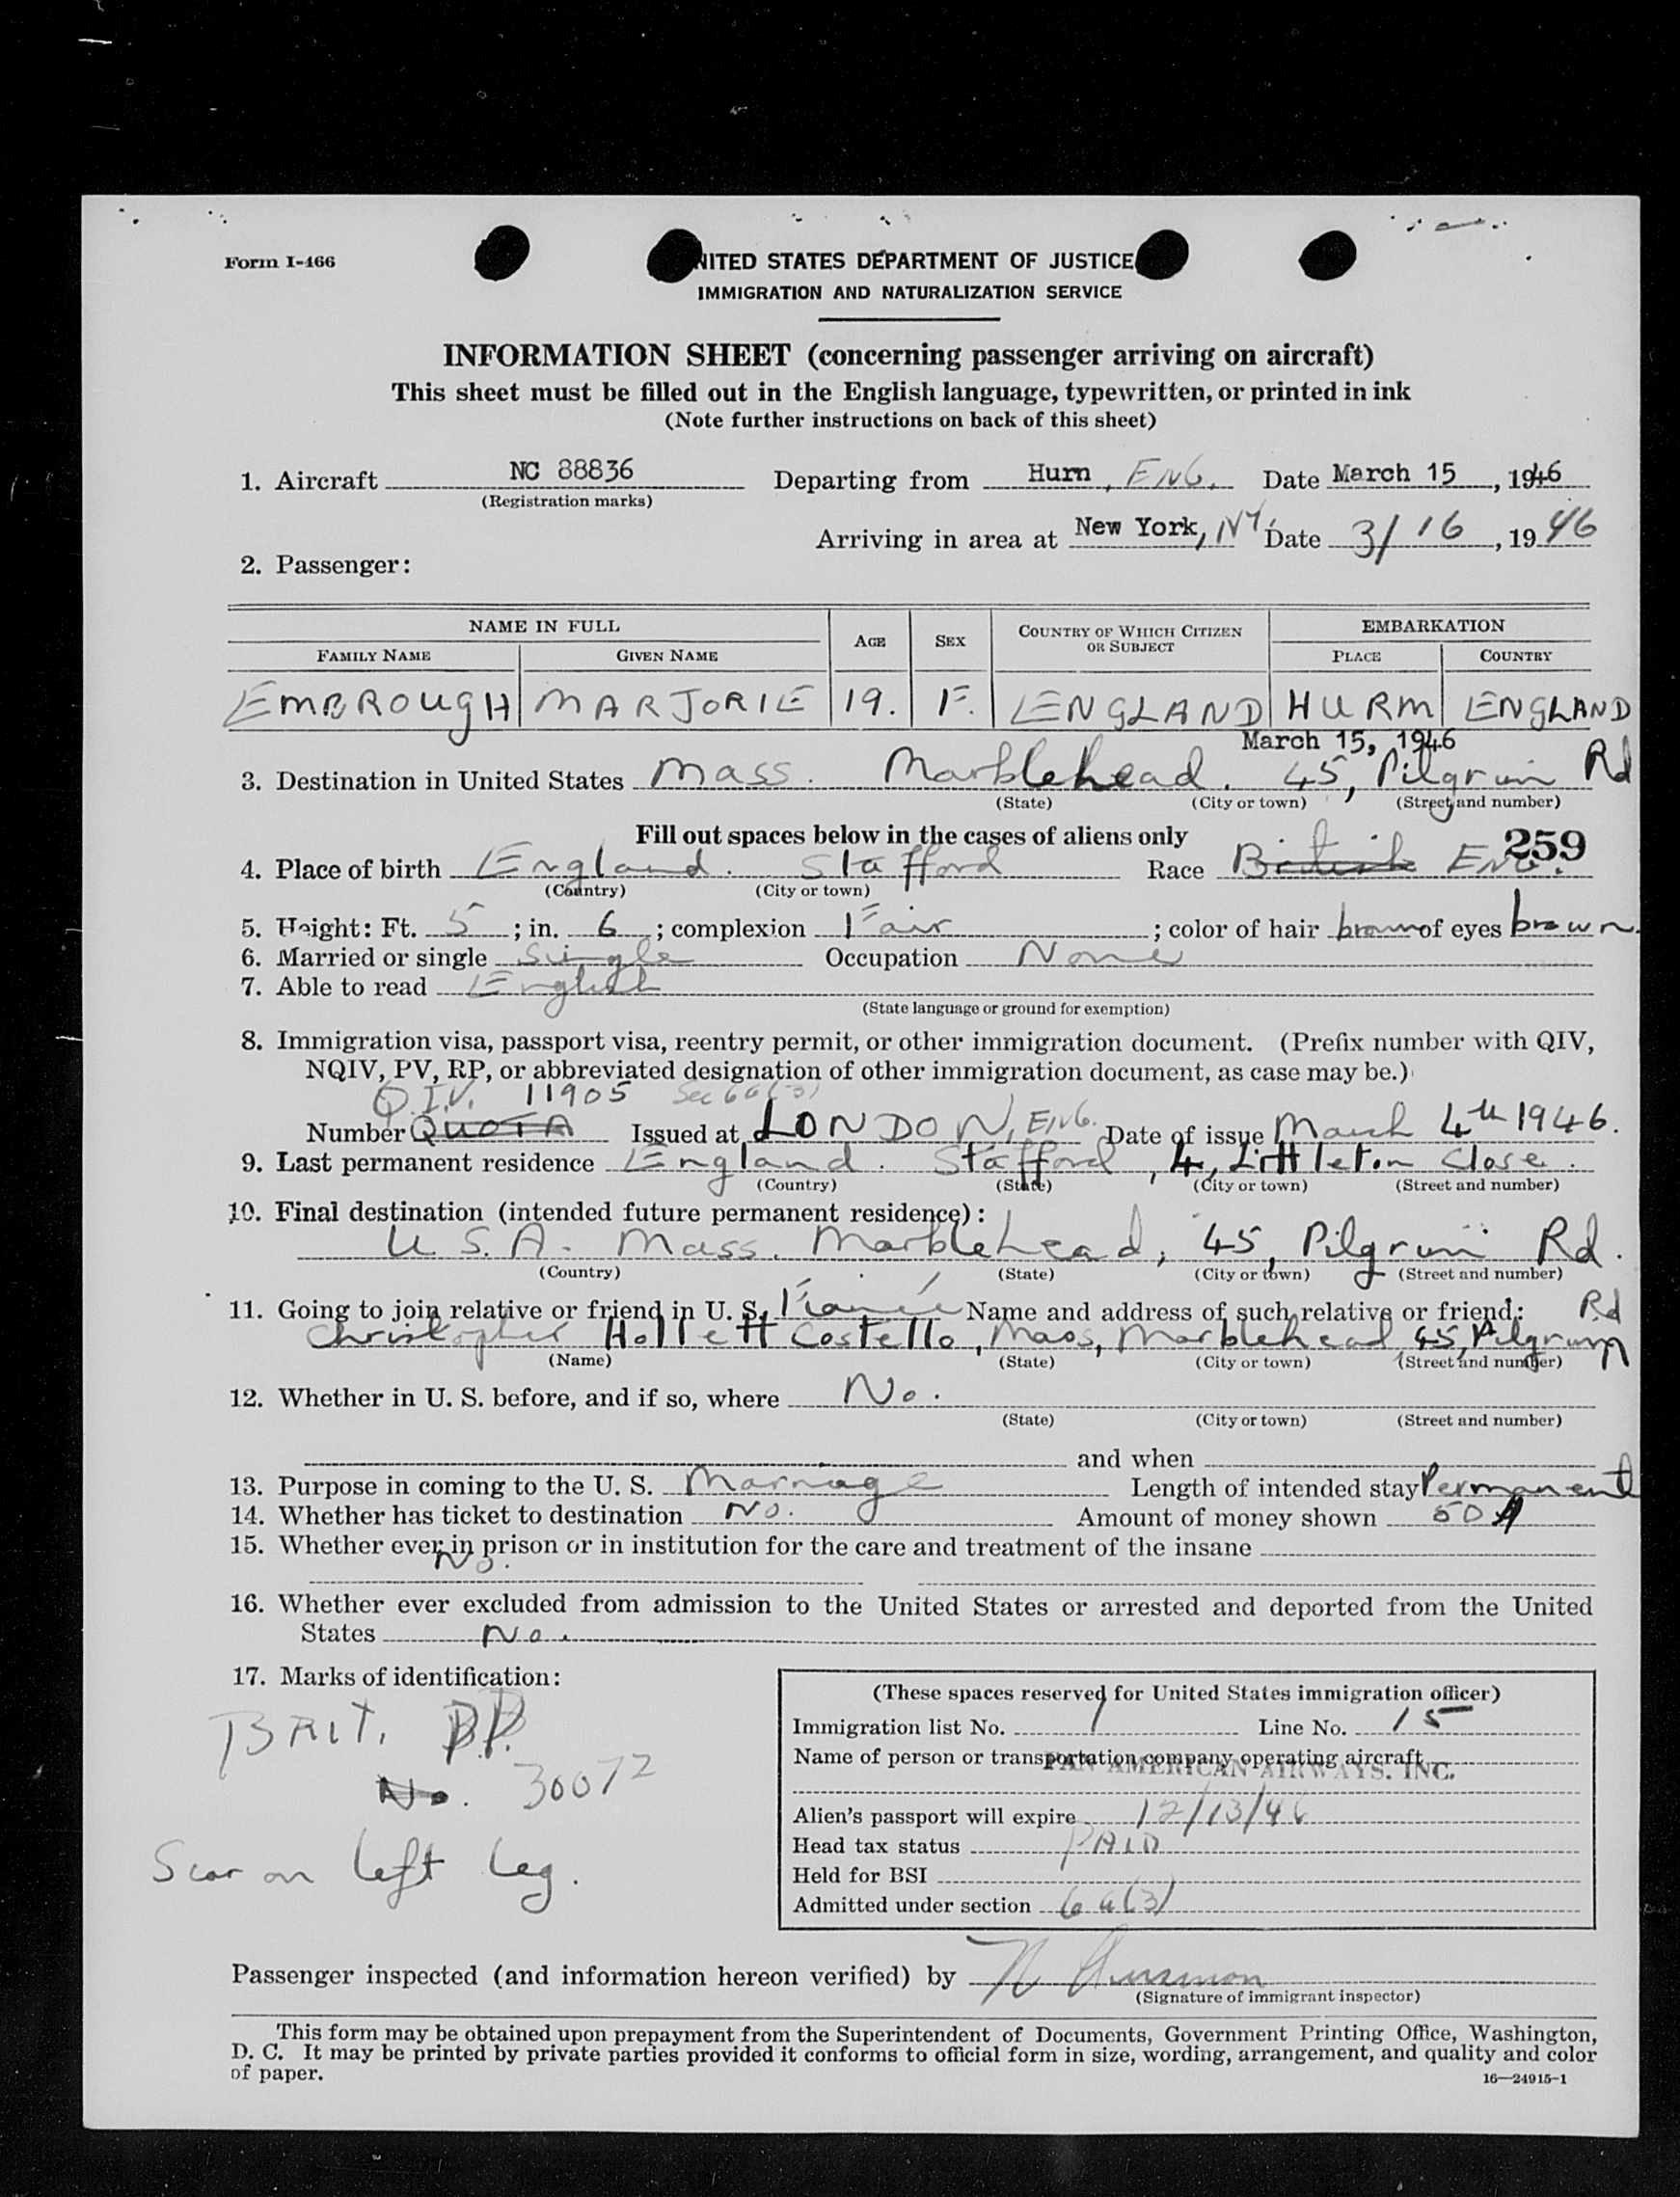 Form I-466
UNITED STATES DEPARTMENT OF JUSTICE
IMMIGRATION AND NATURALIZATION SERVICE
INFORMATION SHEET (concerning passenger arriving on aircraft)
This sheet must be filled out in the English language, typewritten, or printed in ink
(Note further instructions on back of this sheet)
1. Aircraft NC 88836 Departing from Hurn, ENG. Date March 15, 1946
(Registration marks)
Arriving in area at New York, NY. Date 3/16, 1946
2. Passenger:
NAME IN FULL AGE SEX COUNTRY OF WHICH CITIZEN OR SUBJECT EMBARKATION
FAMILY NAME GIVEN NAME PLACE COUNTRY
EMBROUGH MARJORIE 19. F. ENGLAND HURM ENGLAND
March 15, 1946
3. Destination in United States Mass. Marblehead. 45, Pilgrim Rd
(State) (City or town) (Street and number)
Fill out spaces below in the cases of aliens only
259
4. Place of birth England. Stafford Race British ENG.
(Country) (City or town)
5. Height: Ft. 5; in. 6; complexion Fair; color of hair brown of eyes brown.
6. Married or single Single Occupation None
7. Able to read English
(State language or ground for exemption)
8. Immigration visa, passport visa, reentry permit, or other immigration document. (Prefix number with QIV,
NQIV, PV, RP, or abbreviated designation of other immigration document, as case may be.)
Q.I.V. 11905 Sec 6a(3)
Number QUOTA Issued at LONDON, ENG. Date of issue March 4th 1946.
9. Last permanent residence England. Stafford, 4, Littleton Close.
(Country) (State) (City or town) (Street and number)
10. Final destination (intended future permanent residence):
U.S.A. Mass. Marblehead, 45, Pilgrim Rd.
(Country) (State) (City or town) (Street and number)
11. Going to join relative or friend in U. S. Fiancé Name and address of such relative or friend: Rd
Christopher Hollett Costello, Mass, Marblehead, 45, Pilgrim
(Name) (State) (City or town) (Street and number)
12. Whether in U. S. before, and if so, where No.
(State) (City or town) (Street and number)
and when
13. Purpose in coming to the U. S. Marriage Length of intended stay Permanent
14. Whether has ticket to destination No. Amount of money shown 50
15. Whether ever in prison or in institution for the care and treatment of the insane
No.
16. Whether ever excluded from admission to the United States or arrested and deported from the United
States No.
17. Marks of identification:
BRIT. P.P.
No. 30072
Scar on left leg.
(These spaces reserved for United States immigration officer)
Immigration list No. 1 Line No. 15
Name of person or transportation company operating aircraft
PAN AMERICAN AIRWAYS, INC.
Alien's passport will expire 12/13/46
Head tax status PAID
Held for BSI
Admitted under section 6a(3)
Passenger inspected (and information hereon verified) by
(Signature of immigrant inspector)
This form may be obtained upon prepayment from the Superintendent of Documents, Government Printing Office, Washington,
D. C. It may be printed by private parties provided it conforms to official form in size, wording, arrangement, and quality and color
of paper.
16—24915-1